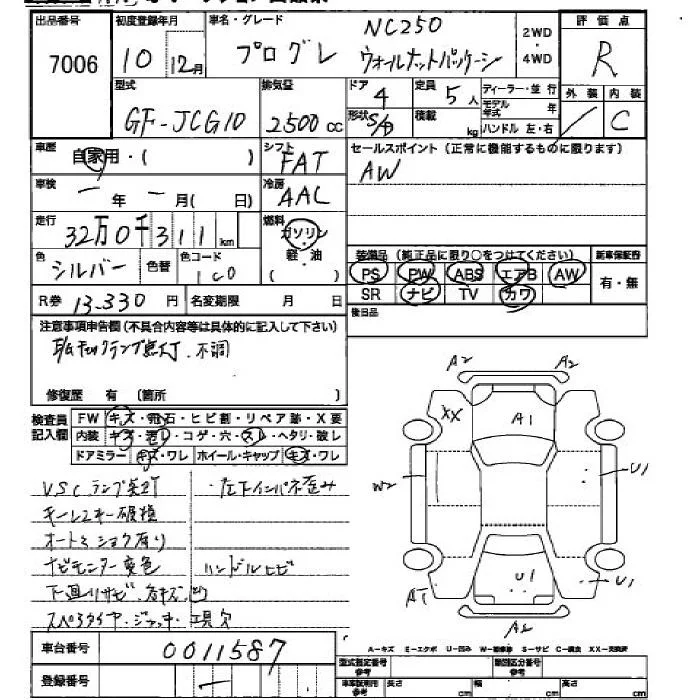 出品番号 初度登録年月 車名・グレード NC250 2WD・4WD 評価点
7006 10 12月 プログレ ウォールナットパッケージ R
型式 排気量 ドア 4 定員 5人 ディーラー・並行 外装 内装
GF-JCG10 2500cc 形状 S/D 積載 kg モデル年式 年 ハンドル 左・右 C
車歴 自家用・( ) シフト FAT セールスポイント(正常に機能するものに限ります)
車検 年 月( 日) 冷房 AAC AW
走行 32万0千311km 燃料 ガソリン
色 シルバー 色替 色コード 1C0 軽・油 ( )
装備品(純正品に限り○をつけてください) 新車保証書
PS PW ABS エアB AW 有・無
SR ナビ TV カワ
R券 13.330円 名変期限 月 日 後日品
注意事項申告欄(不具合内容等は具体的に記入して下さい)
E/Gチェックランプ点灯.不調
修復歴 有(箇所 )
検査員記入欄 FW キズ・飛石・ヒビ割・リペア跡・X要
内装 キズ・汚レ・コゲ・穴・スレ・ヘタリ・破レ
ドアミラー キズ・ワレ ホイール・キャップ キズ・ワレ
VSCランプ点灯 ・左下インパネ歪み
キーレスキー破損
オートミショク有り
ナビモニター変色 ハンドルヒビ
下廻りサビ、キズ、凹
スペアタイヤ・ジャッキ・工具欠
A2 A2
XX A1
W2 U1
U1 U1
A1
A2
A-キズ E-エクボ U-凹み W-補修跡 S-サビ C-腐食 XX-交換済
車台番号 0011587
型式指定番号 参考 類別区分番号 参考
登録番号 車車証用 参考 長さ cm 幅 cm 高さ cm